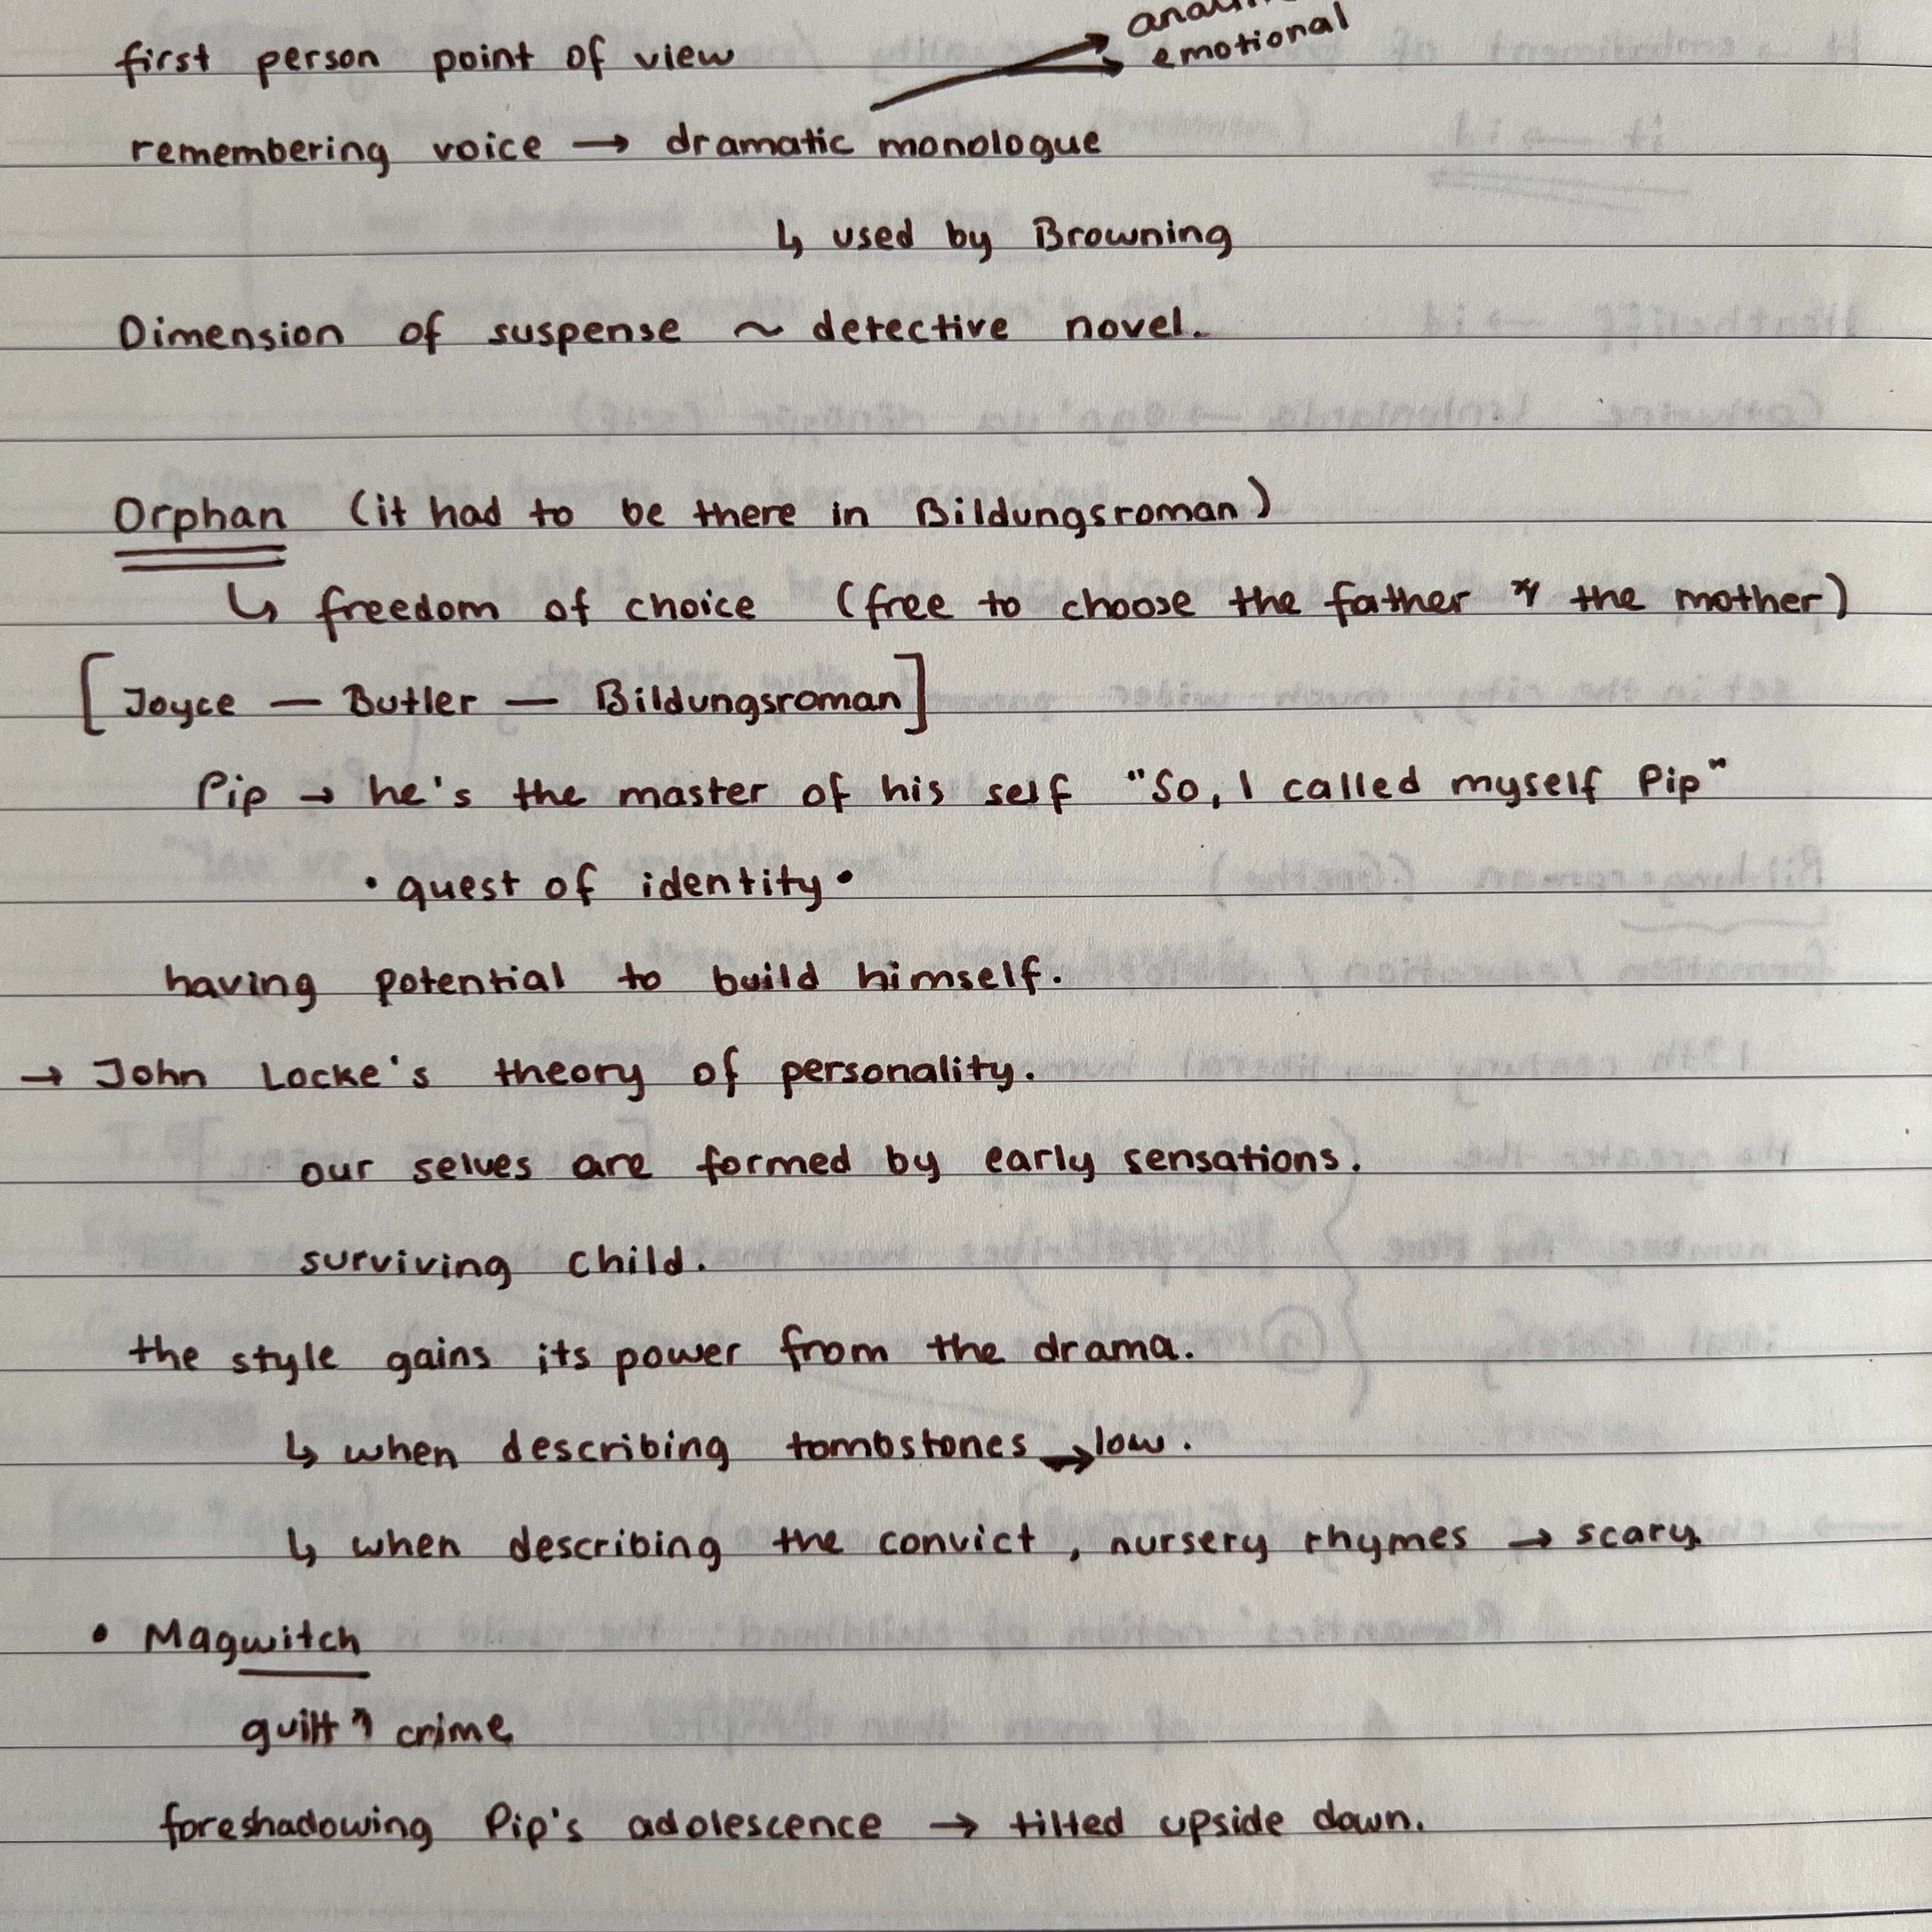 emotional
first person point of view
remembering voice → dramatic monologue
↳ used by Browning
Dimension of suspense ~ detective novel.
Orphan (it had to be there in Bildungsroman)
↳ freedom of choice (free to choose the father & the mother)
[Joyce — Butler — Bildungsroman]
Pip → he's the master of his self "So, I called myself Pip"
• quest of identity •
having potential to build himself.
→ John Locke's theory of personality.
our selves are formed by early sensations.
surviving child.
the style gains its power from the drama.
↳ when describing tombstones → low.
↳ when describing the convict, nursery rhymes → scary.
• Magwitch
guilt & crime
foreshadowing Pip's adolescence → tilted upside down.